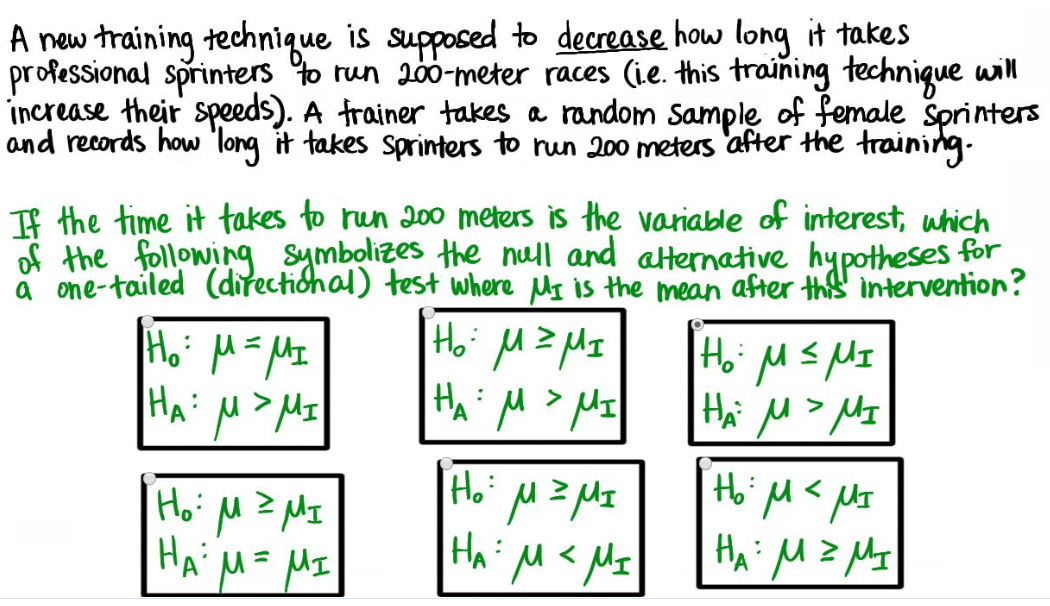 A new training technique is supposed to decrease how long it takes
professional sprinters to run 200-meter races (i.e. this training technique will
increase their speeds). A trainer takes a random sample of female sprinters
and records how long it takes sprinters to run 200 meters after the training.
If the time it takes to run 200 meters is the variable of interest, which
of the following symbolizes the null and alternative hypotheses for
a one-tailed (directional) test where μ_I is the mean after this intervention?
H₀: μ = μ_I
H_A: μ > μ_I
H₀: μ ≥ μ_I
H_A: μ > μ_I
H₀: μ ≤ μ_I
H_A: μ > μ_I
H₀: μ ≥ μ_I
H_A: μ = μ_I
H₀: μ ≥ μ_I
H_A: μ < μ_I
H₀: μ < μ_I
H_A: μ ≥ μ_I